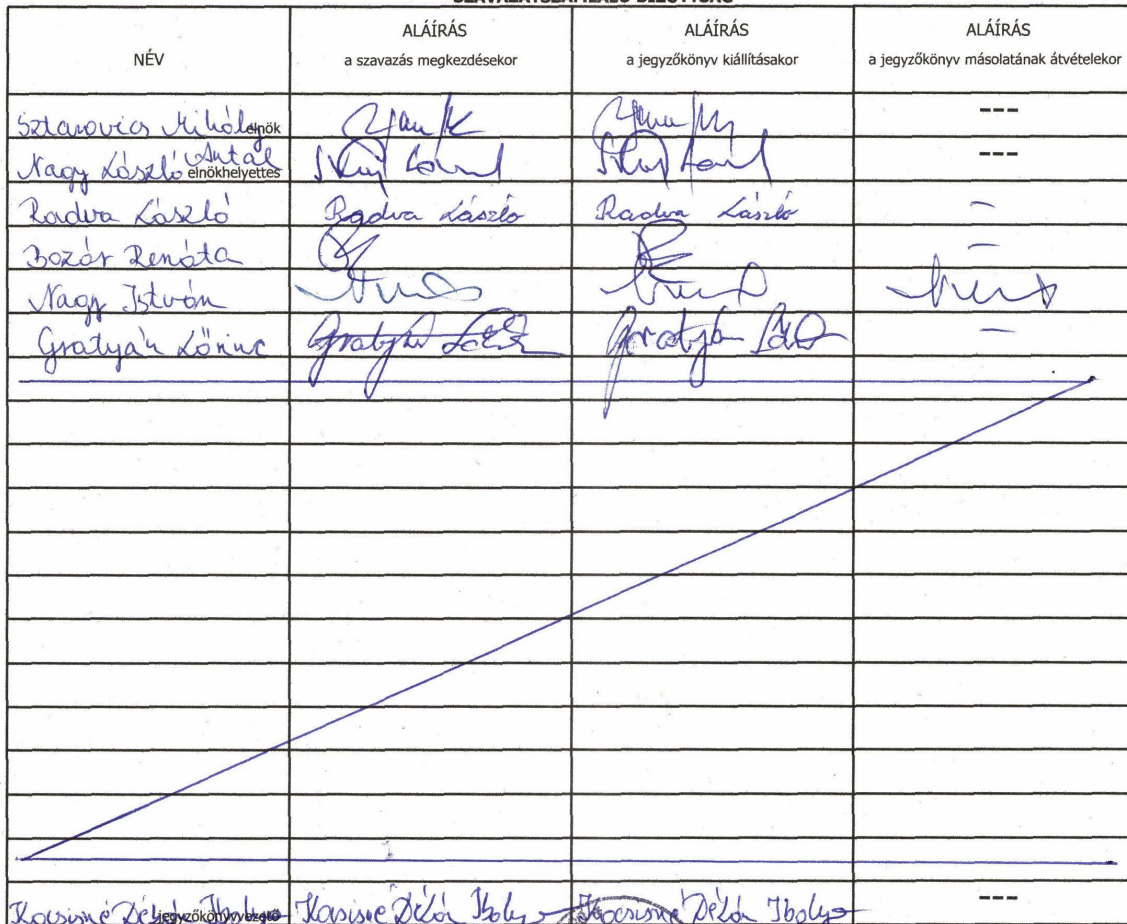 SZAVAZATSZÁMLÁLÓ BIZOTTSÁG
NÉV
ALÁÍRÁS
a szavazás megkezdésekor
ALÁÍRÁS
a jegyzőkönyv kiállításakor
ALÁÍRÁS
a jegyzőkönyv másolatának átvételekor
Sztanovics Mihály elnök ---
Nagy László Antal elnökhelyettes ---
Radva László Radva László Radva László -
Bozár Renáta -
Nagy István
Gratyán Lőrinc -
Kocsisné Délón Ibolya jegyzőkönyvvezető Kocsisné Délón Ibolya Kocsisné Délón Ibolya ---